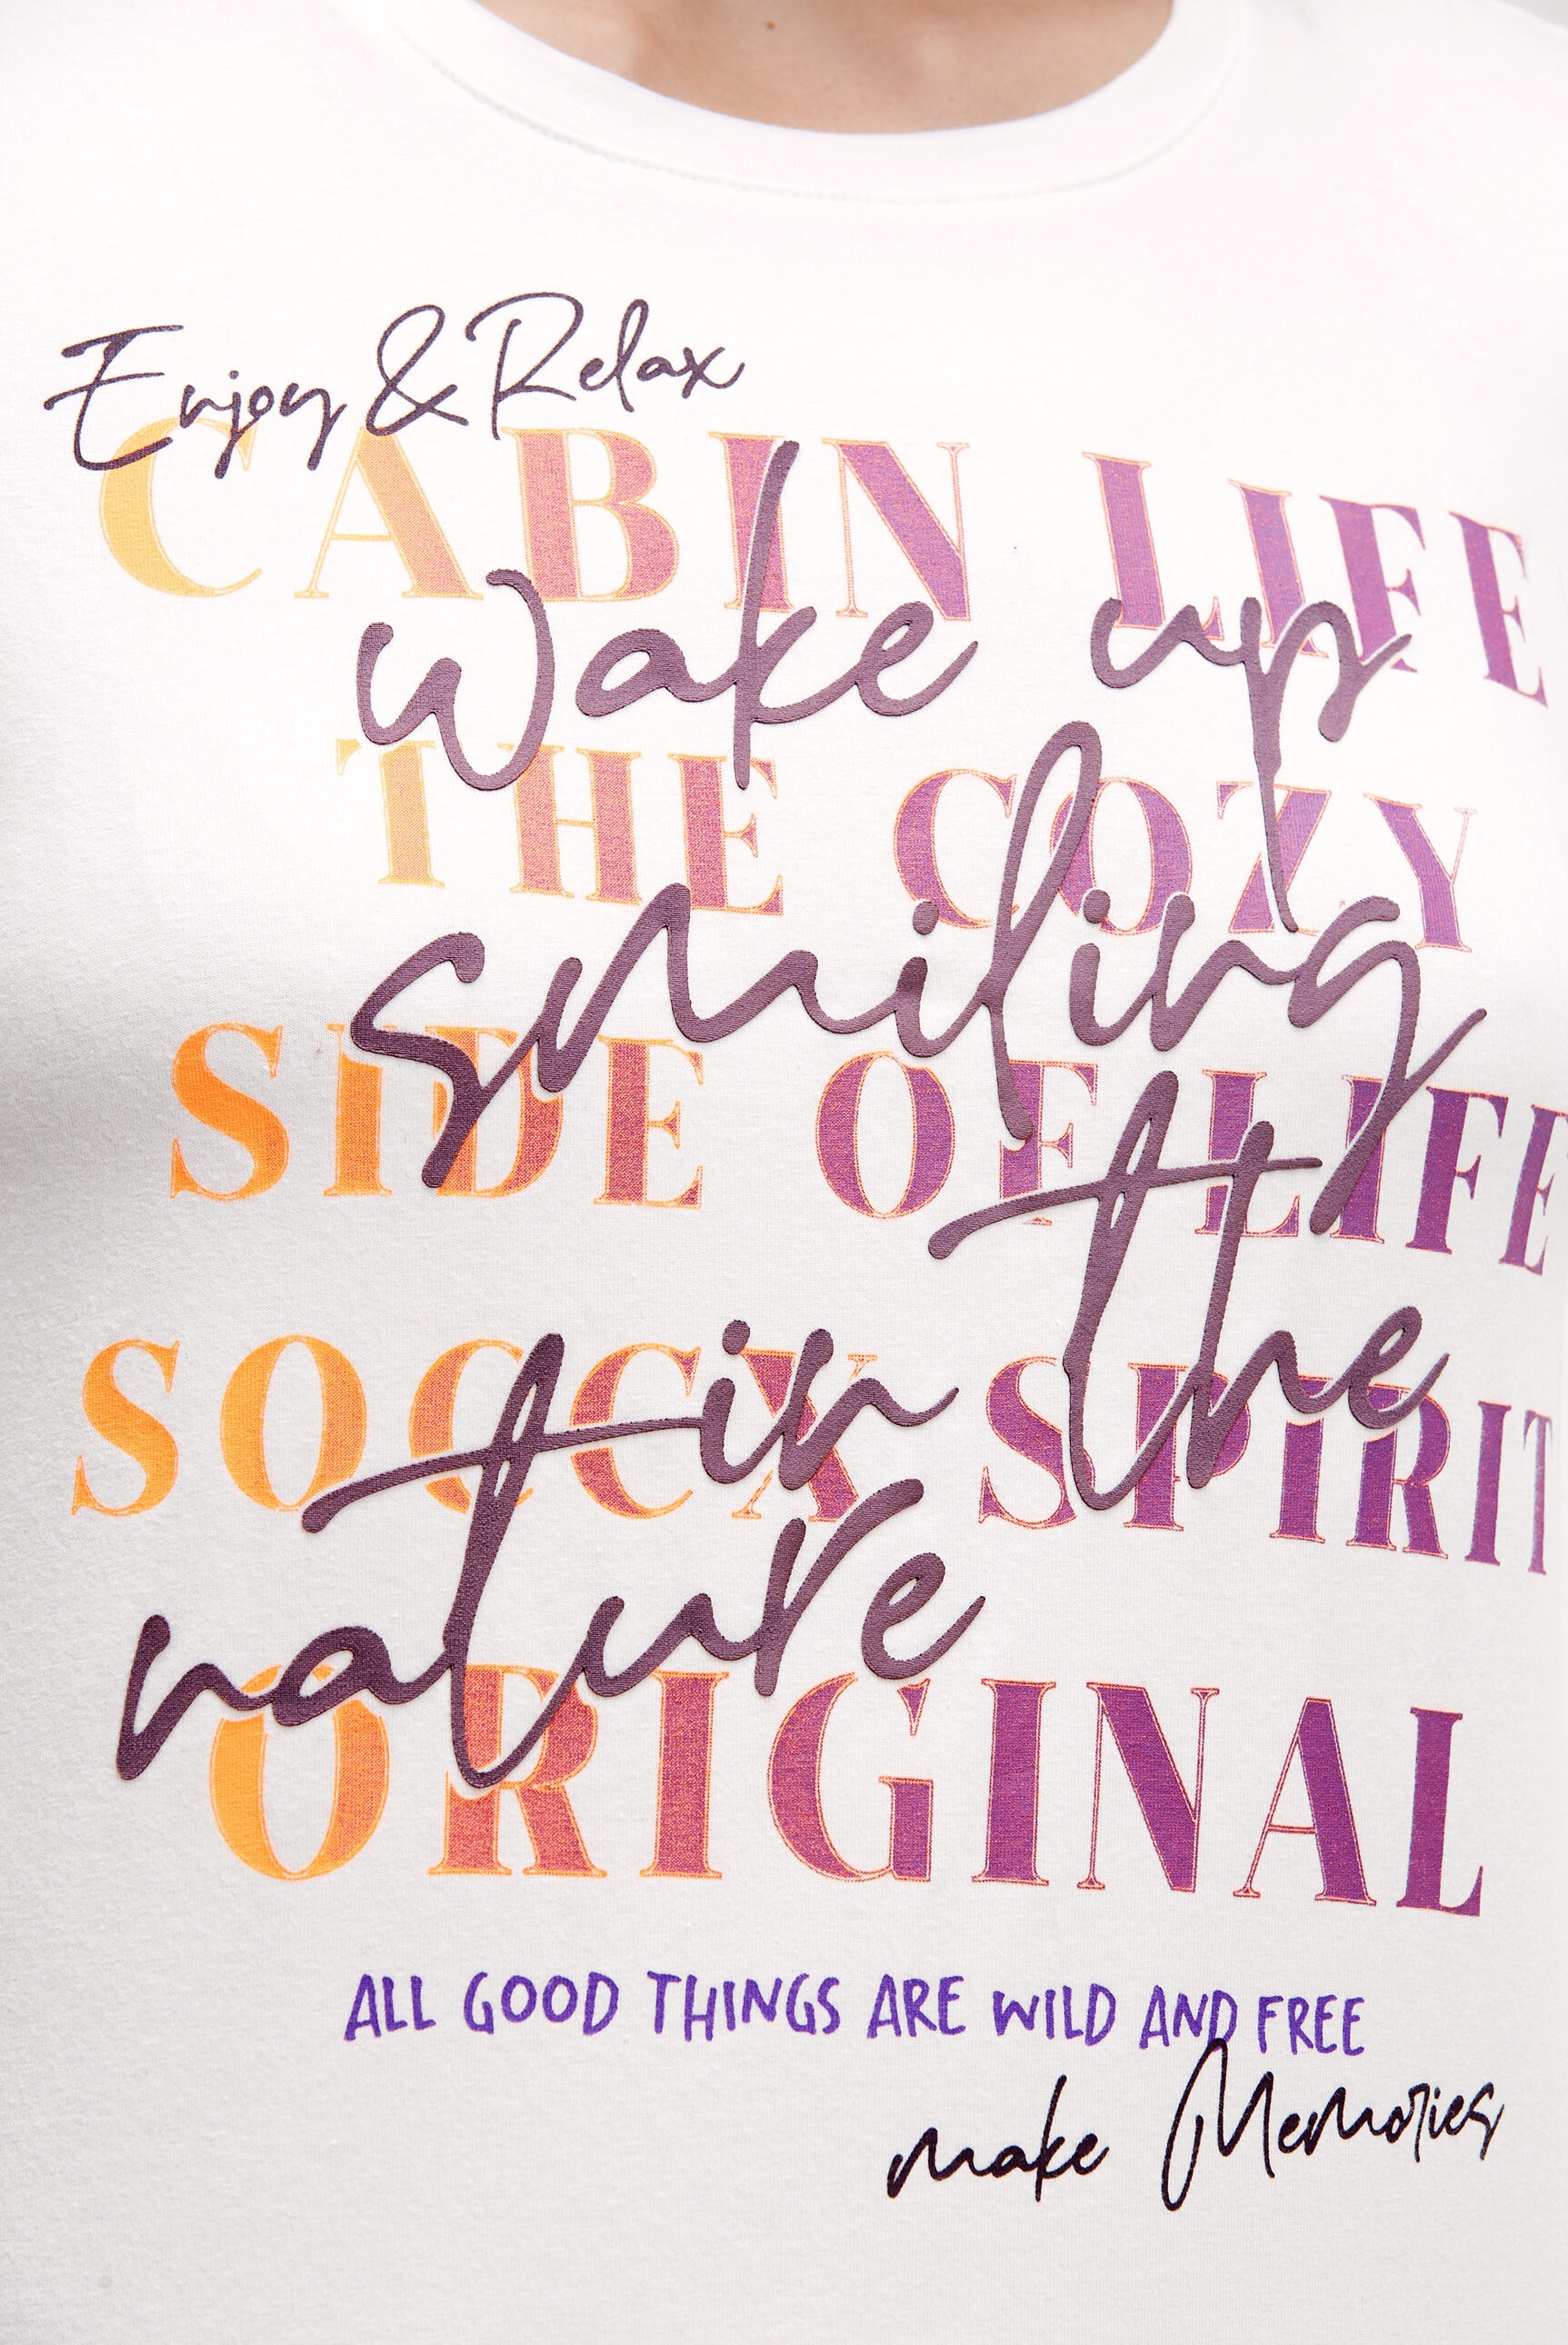 Enjoy & Relax
CABIN LIFE
wake up
THE COZY
smiling
SIDE OF LIFE
the
in
SOCCX SPIRIT
nature
ORIGINAL
ALL GOOD THINGS ARE WILD AND FREE
make Memories